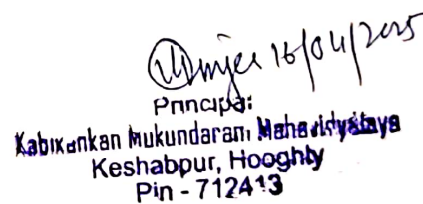 16/04/2025
Principal
Kabikankan Mukundaram Mahavidyalaya
Keshabpur, Hooghly
Pin - 712413